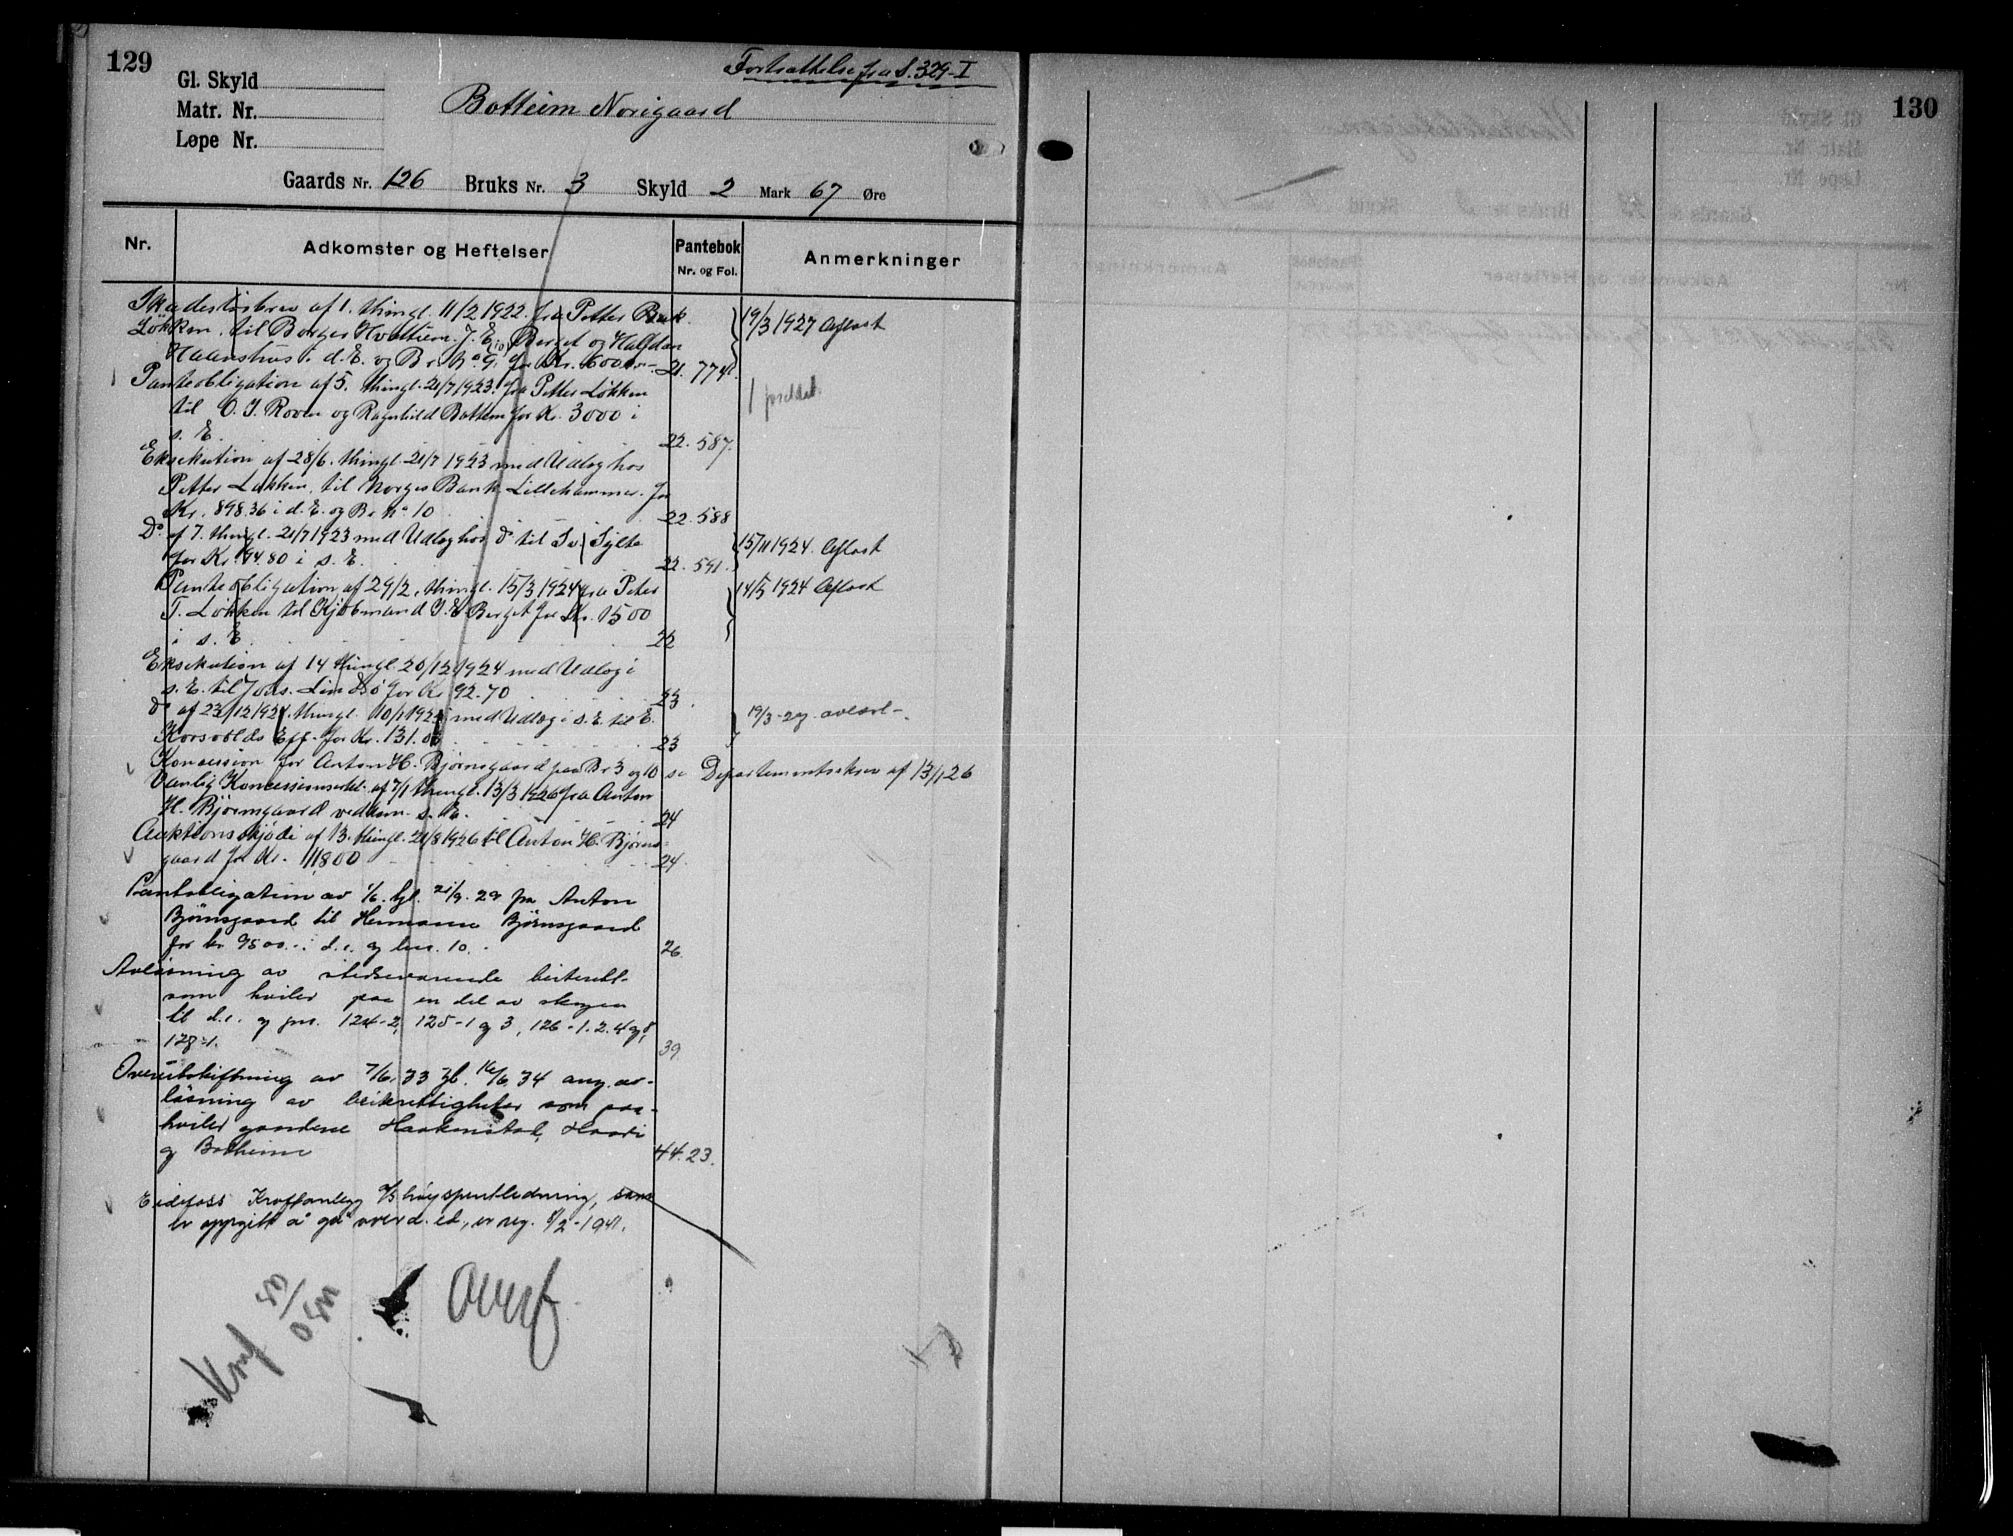 129
Fortsættelse fra S. 329-I
Gl. Skyld
Matr. Nr.
Løpe Nr.
Botteim Norigaard
Gaards Nr. 126 Bruks Nr. 3 Skyld 2 Mark 67 Øre
Nr. Adkomster og Heftelser Pantebok Nr. og Fol. Anmerkninger
Skadesløsbrev af 1. thingl. 11/2 1922 fra Petter
Løkken til Borger J. E. Berget og Halfdan
i d. E. og Br. No 9 for Kr. 6000 21. 774.
19/3 1927 Aflæst
Panteobligation af 5. thingl. 21/7 1923 fra Petter Løkken
til O. J. Roven og Ragnhild Bottem for Kr. 3000 i
s. E. 22. 587.
Eksekution af 28/6. thingl. 21/7 1923 med Udlæg hos
Petter Løkken, til Norges Bank, Lillehammer for
Kr. 898.36 i d. E. og Br. No 10 22. 588
Do af 7. thingl. 21/7 1923 med Udlæg hos do til Sylte
for Kr. 94.80 i s. E. 22. 591.
15/11 1924. Aflæst
Panteobligation af 29/2, thingl. 15/3 1924 fra Peter
T. Løkken til Kjøbmand J. E. Berget for Kr. 1500
i s. E. 22
14/5 1924 Aflæst
Eksekution af 14 thingl. 20/12 1924 med Udlæg i
s. E. til Johs. Lindsø for Kr. 92.70 23.
do af 23/12 1924. thingl. 10/1 1925 med Udlæg i s. E. til E.
Korsvolds Eff. for Kr. 131.00 23
19/3-27 avlæst
Koncession for Anton H. Bjørnsgaard paa Br 3 og 10 se Departementsskriv af 13/1 26
Vanlig Koncessionserkl. af 7/1 thingl. 13/3 1926 fra Anton
H. Bjørnsgaard vedkom. s. E. 24
Auktionsskjøde af 13. thingl. 21/8 1926 til Anton H. Bjørns-
gaard for Kr. 11800 24.
Pantobligation av 1/6. tgl. 21/9. 29 fra Anton
Bjørnsgaard til Hermann Bjørnsgaard
for kr 9500.- i d. e. og bnr. 10. 26.
Avløsning av stedsevarende beiterett
som hviler paa en del av skogen
til d. e. og gnr. 124-2, 125-1 og 3, 126-1. 2. 4 og 8,
128-1. 39
Overutskiftning av 7/6. 33 tgl. 16/6 34 ang. av-
løsning av beiterettigheter som paa-
hviler gaardene Haakenstad, Haave
og Botheim 44. 23.
Eidefoss Kraftanlegg høyspentledning, som
er oppgitt å gå over d. ed., er reg. 8/2-1941.
Overf
130